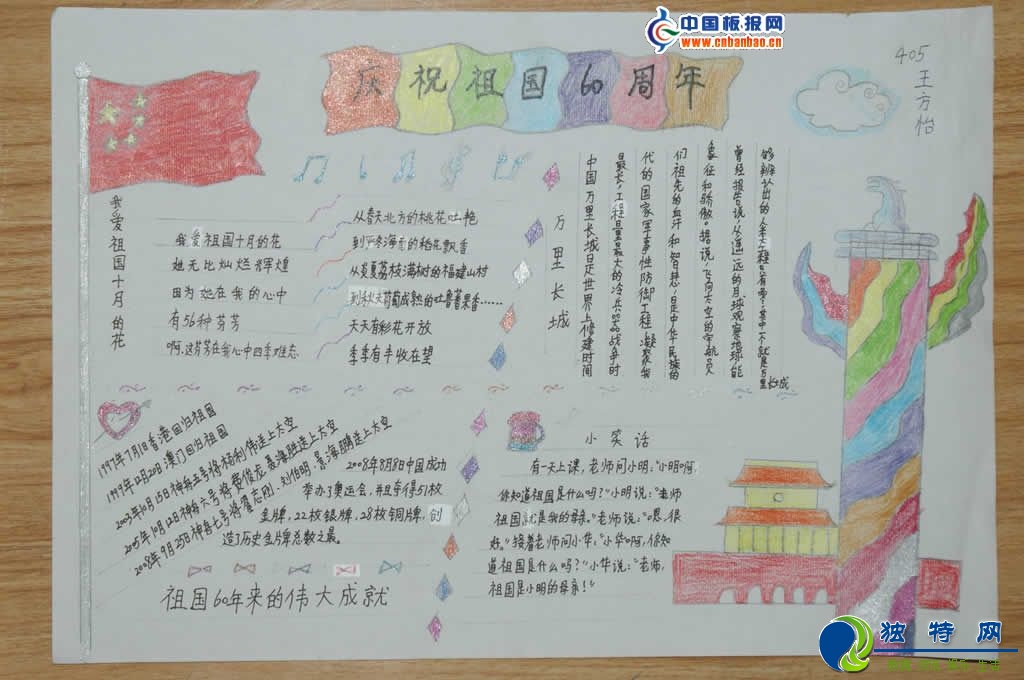 中国板报网
www.cnbanbao.cn
庆祝祖国60周年
405
王方怡
我爱祖国十月的花
我爱祖国十月的花
她无比灿烂辉煌
因为她在我的心中
有56种芬芳
啊,这芬芳在我心中四季难忘
从春天北方的桃花吐艳
到
的稻花飘香
从炎夏荔枝满树的福建山村
到秋天葡萄成熟的吐鲁番果香……
天天有彩花开放
季季有丰收在望
万里长城
中国万里长城是世界上修建时间
最长,工程量最大的冷兵器战争时
代的国家军事性防御工程,凝聚我
们祖先的血汗和智慧,是中华民族的
象征和骄傲。据说,飞向太空的宇航员
曾经报告说,从遥远的月球观察地球,能
够辨认出的人类工程
其中一个就是万里
长城
1997年7月1日香港回归祖国
1999年12月20日澳门回归祖国
2003年10月15日神舟五号将杨利伟送上太空
2005年10月12日神舟六号将费俊龙,聂海胜送上太空
2008年9月25日神舟七号将翟志刚,刘伯明,景海鹏送上太空
2008年8月8日中国成功
举办了奥运会,并且夺得51枚
金牌,22枚银牌,28枚铜牌,创
造了历史金牌总数之最。
祖国60年来的伟大成就
小笑话
有一天上课,老师问小明:“小明啊,
你知道祖国是什么吗?”小明说:“老师
祖国就是我的母亲。”老师说:“恩,很
好。”接着老师问小华:“小华啊,你知
道祖国是什么吗?”小华说:“老师,
祖国是小明的母亲!”
独特网